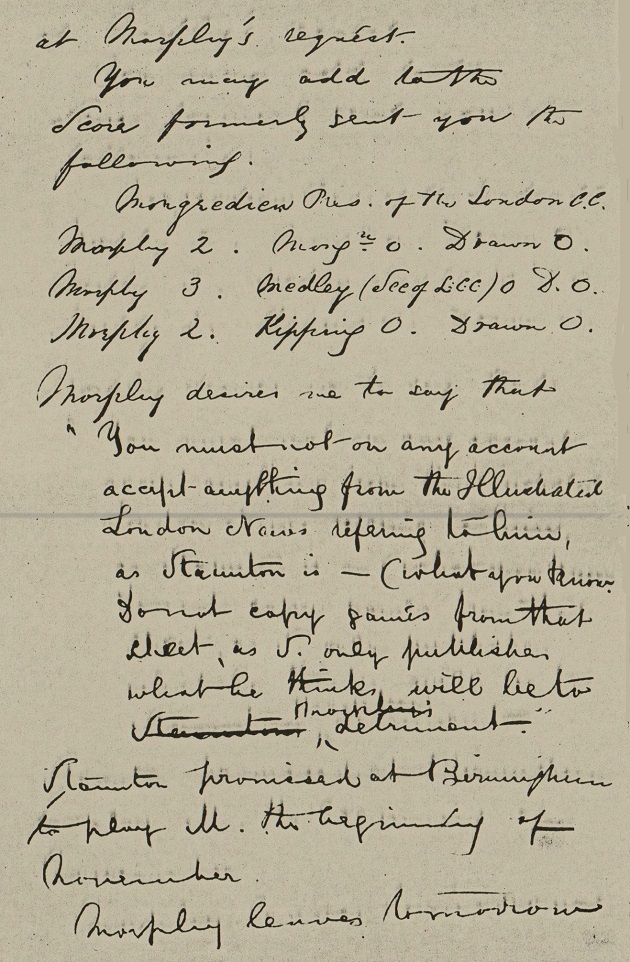 at Morphy's request.
You may add to the
Score formerly sent you the
following.
Mongredien Pres. of the London C.C.
Morphy 2. Mong<sup>n</sup> 0. Drawn 0.
Morphy 3. Medley (Sec of L.CC) 0 D. 0.
Morphy 2. Kipping 0. Drawn 0.
Morphy desires me to say that
"You must not on any account
accept anything from the Illustrated
London News refering to him,
as Staunton is — (what you know.
Do not copy games from that
sheet, as S. only publishes
what he thinks will be to
Morphy's
Staunton detriment."
Staunton promised at Birmingham
to play M. the beginning of
November.
Morphy leaves tomorrow